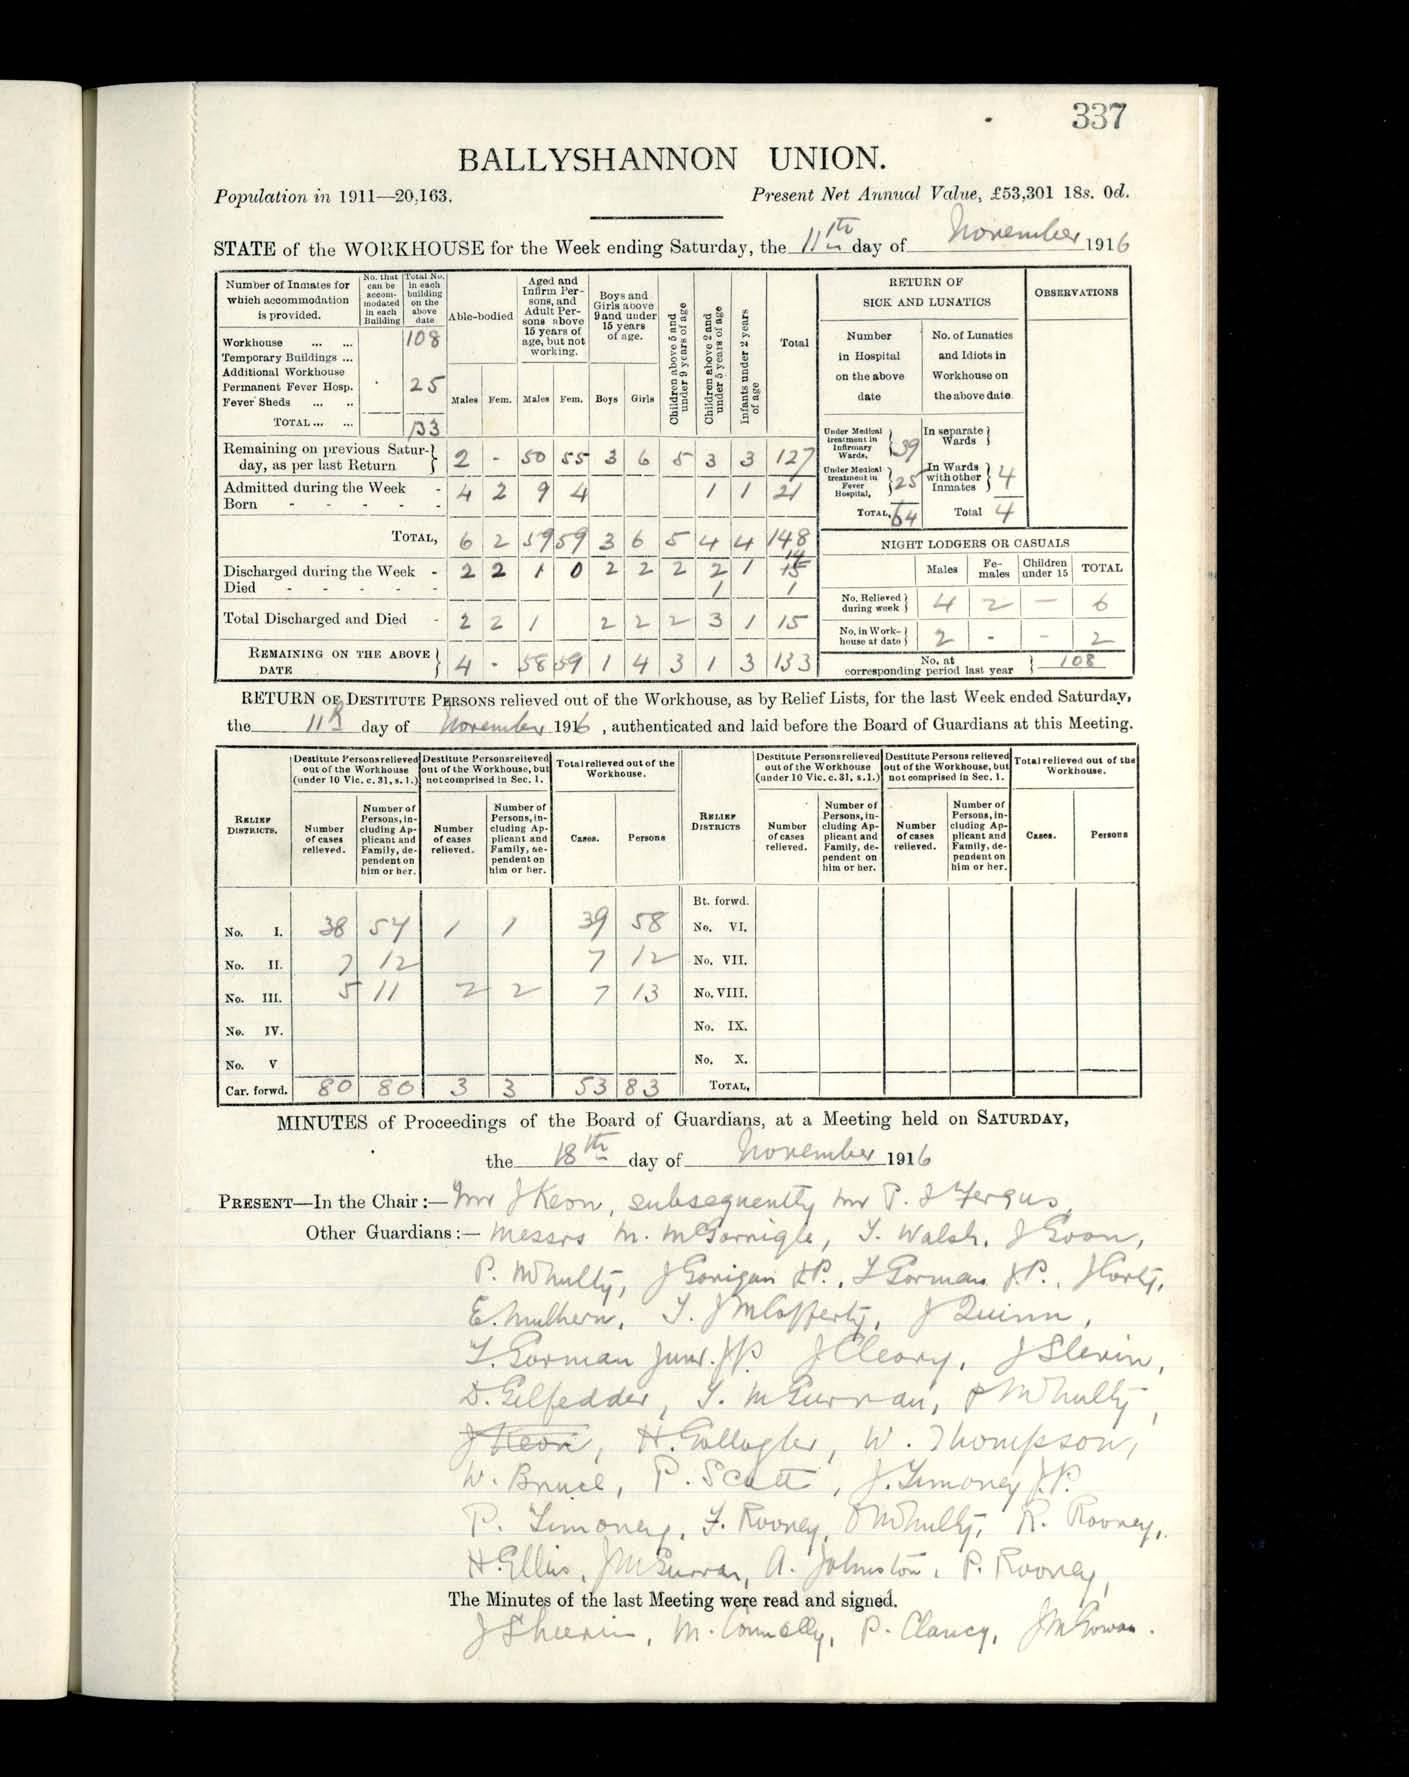 337
BALLYSHANNON UNION.
Population in 1911—20,163. Present Net Annual Value, £53,301 18s. 0d.
STATE of the WORKHOUSE for the Week ending Saturday, the 11th day of November 1916
Number of Inmates for which accommodation is provided. No. that can be accommodated in each Building Total No. in each building on the above date Able-bodied Aged and Infirm Persons, and Adult Persons above 15 years of age, but not working. Boys and Girls above 9 and under 15 years of age. Children above 5 and under 9 years of age Children above 2 and under 5 years of age Infants under 2 years of age Total
Males Fem. Males Fem. Boys Girls
Workhouse ... ... 108
Temporary Buildings ...
Additional Workhouse
Permanent Fever Hosp. 25
Fever Sheds ... ..
TOTAL ... ... 133
Remaining on previous Saturday, as per last Return 2 - 50 55 3 6 5 3 3 127
Admitted during the Week - 4 2 9 4 1 1 21
Born - - - - -
TOTAL, 6 2 59 59 3 6 5 4 4 148
Discharged during the Week - 2 2 1 0 2 2 2 2 1 15 14
Died - - - - - 1 1
Total Discharged and Died - 2 2 1 2 2 2 3 1 15
REMAINING ON THE ABOVE DATE 4 - 58 59 1 4 3 1 3 133
RETURN OF
SICK AND LUNATICS
OBSERVATIONS
Number in Hospital on the above date No. of Lunatics and Idiots in Workhouse on the above date
Under Medical treatment in Infirmary Wards, 39 In separate Wards
Under Medical treatment in Fever Hospital, 25 In Wards with other Inmates 4
TOTAL, 64 Total 4
NIGHT LODGERS OR CASUALS
Males Females Children under 15 TOTAL
No. Relieved during week 4 2 — 6
No. in Workhouse at date 2 - - 2
No. at corresponding period last year 108
RETURN OF DESTITUTE PERSONS relieved out of the Workhouse, as by Relief Lists, for the last Week ended Saturday,
the 11th day of November 1916 , authenticated and laid before the Board of Guardians at this Meeting.
RELIEF DISTRICTS. Destitute Persons relieved out of the Workhouse (under 10 Vic. c. 31, s. 1.) Destitute Persons relieved out of the Workhouse, but not comprised in Sec. 1. Total relieved out of the Workhouse.
Number of cases relieved. Number of Persons, including Applicant and Family, dependent on him or her. Number of cases relieved. Number of Persons, including Applicant and Family, dependent on him or her. Cases. Persons
No. I. 38 57 1 1 39 58
No. II. 7 12 7 12
No. III. 5 11 2 2 7 13
No. IV.
No. V
Car. forwd. 80 80 3 3 53 83
RELIEF DISTRICTS Destitute Persons relieved out of the Workhouse (under 10 Vic. c. 31, s.1.) Destitute Persons relieved out of the Workhouse, but not comprised in Sec. 1. Total relieved out of the Workhouse.
Number of cases relieved. Number of Persons, including Applicant and Family, dependent on him or her. Number of cases relieved. Number of Persons, including Applicant and Family, dependent on him or her. Cases. Persons
Bt. forwd.
No. VI.
No. VII.
No. VIII.
No. IX.
No. X.
TOTAL,
MINUTES of Proceedings of the Board of Guardians, at a Meeting held on SATURDAY,
the 18th day of November 1916
PRESENT—In the Chair :— Mr J Keon, subsequently Mr P. J Fergus,
Other Guardians :— Messrs M. McGarrigle, T. Walsh, J Goan,
P. McNulty, J Gorigan J.P., T Gorman J.P.,
E. Mulhern, T. J McCafferty, J Quinn,
T. Gorman Junr. J.P. J Cleary, J Slevin,
D. Gilfedder, T. McGurran, P McNulty,
J Keon, H. Gallagher, W. Thompson,
W. Bruce, P. Scott, J. Timoney J.P.
P. Timoney, F. Rooney, McNulty, R. Rooney,
H. Ellis, J McGurran, A. Johnston, P. Rooney,
The Minutes of the last Meeting were read and signed.
J Sheerin, M. Connolly, P. Clancy, J McGowan.